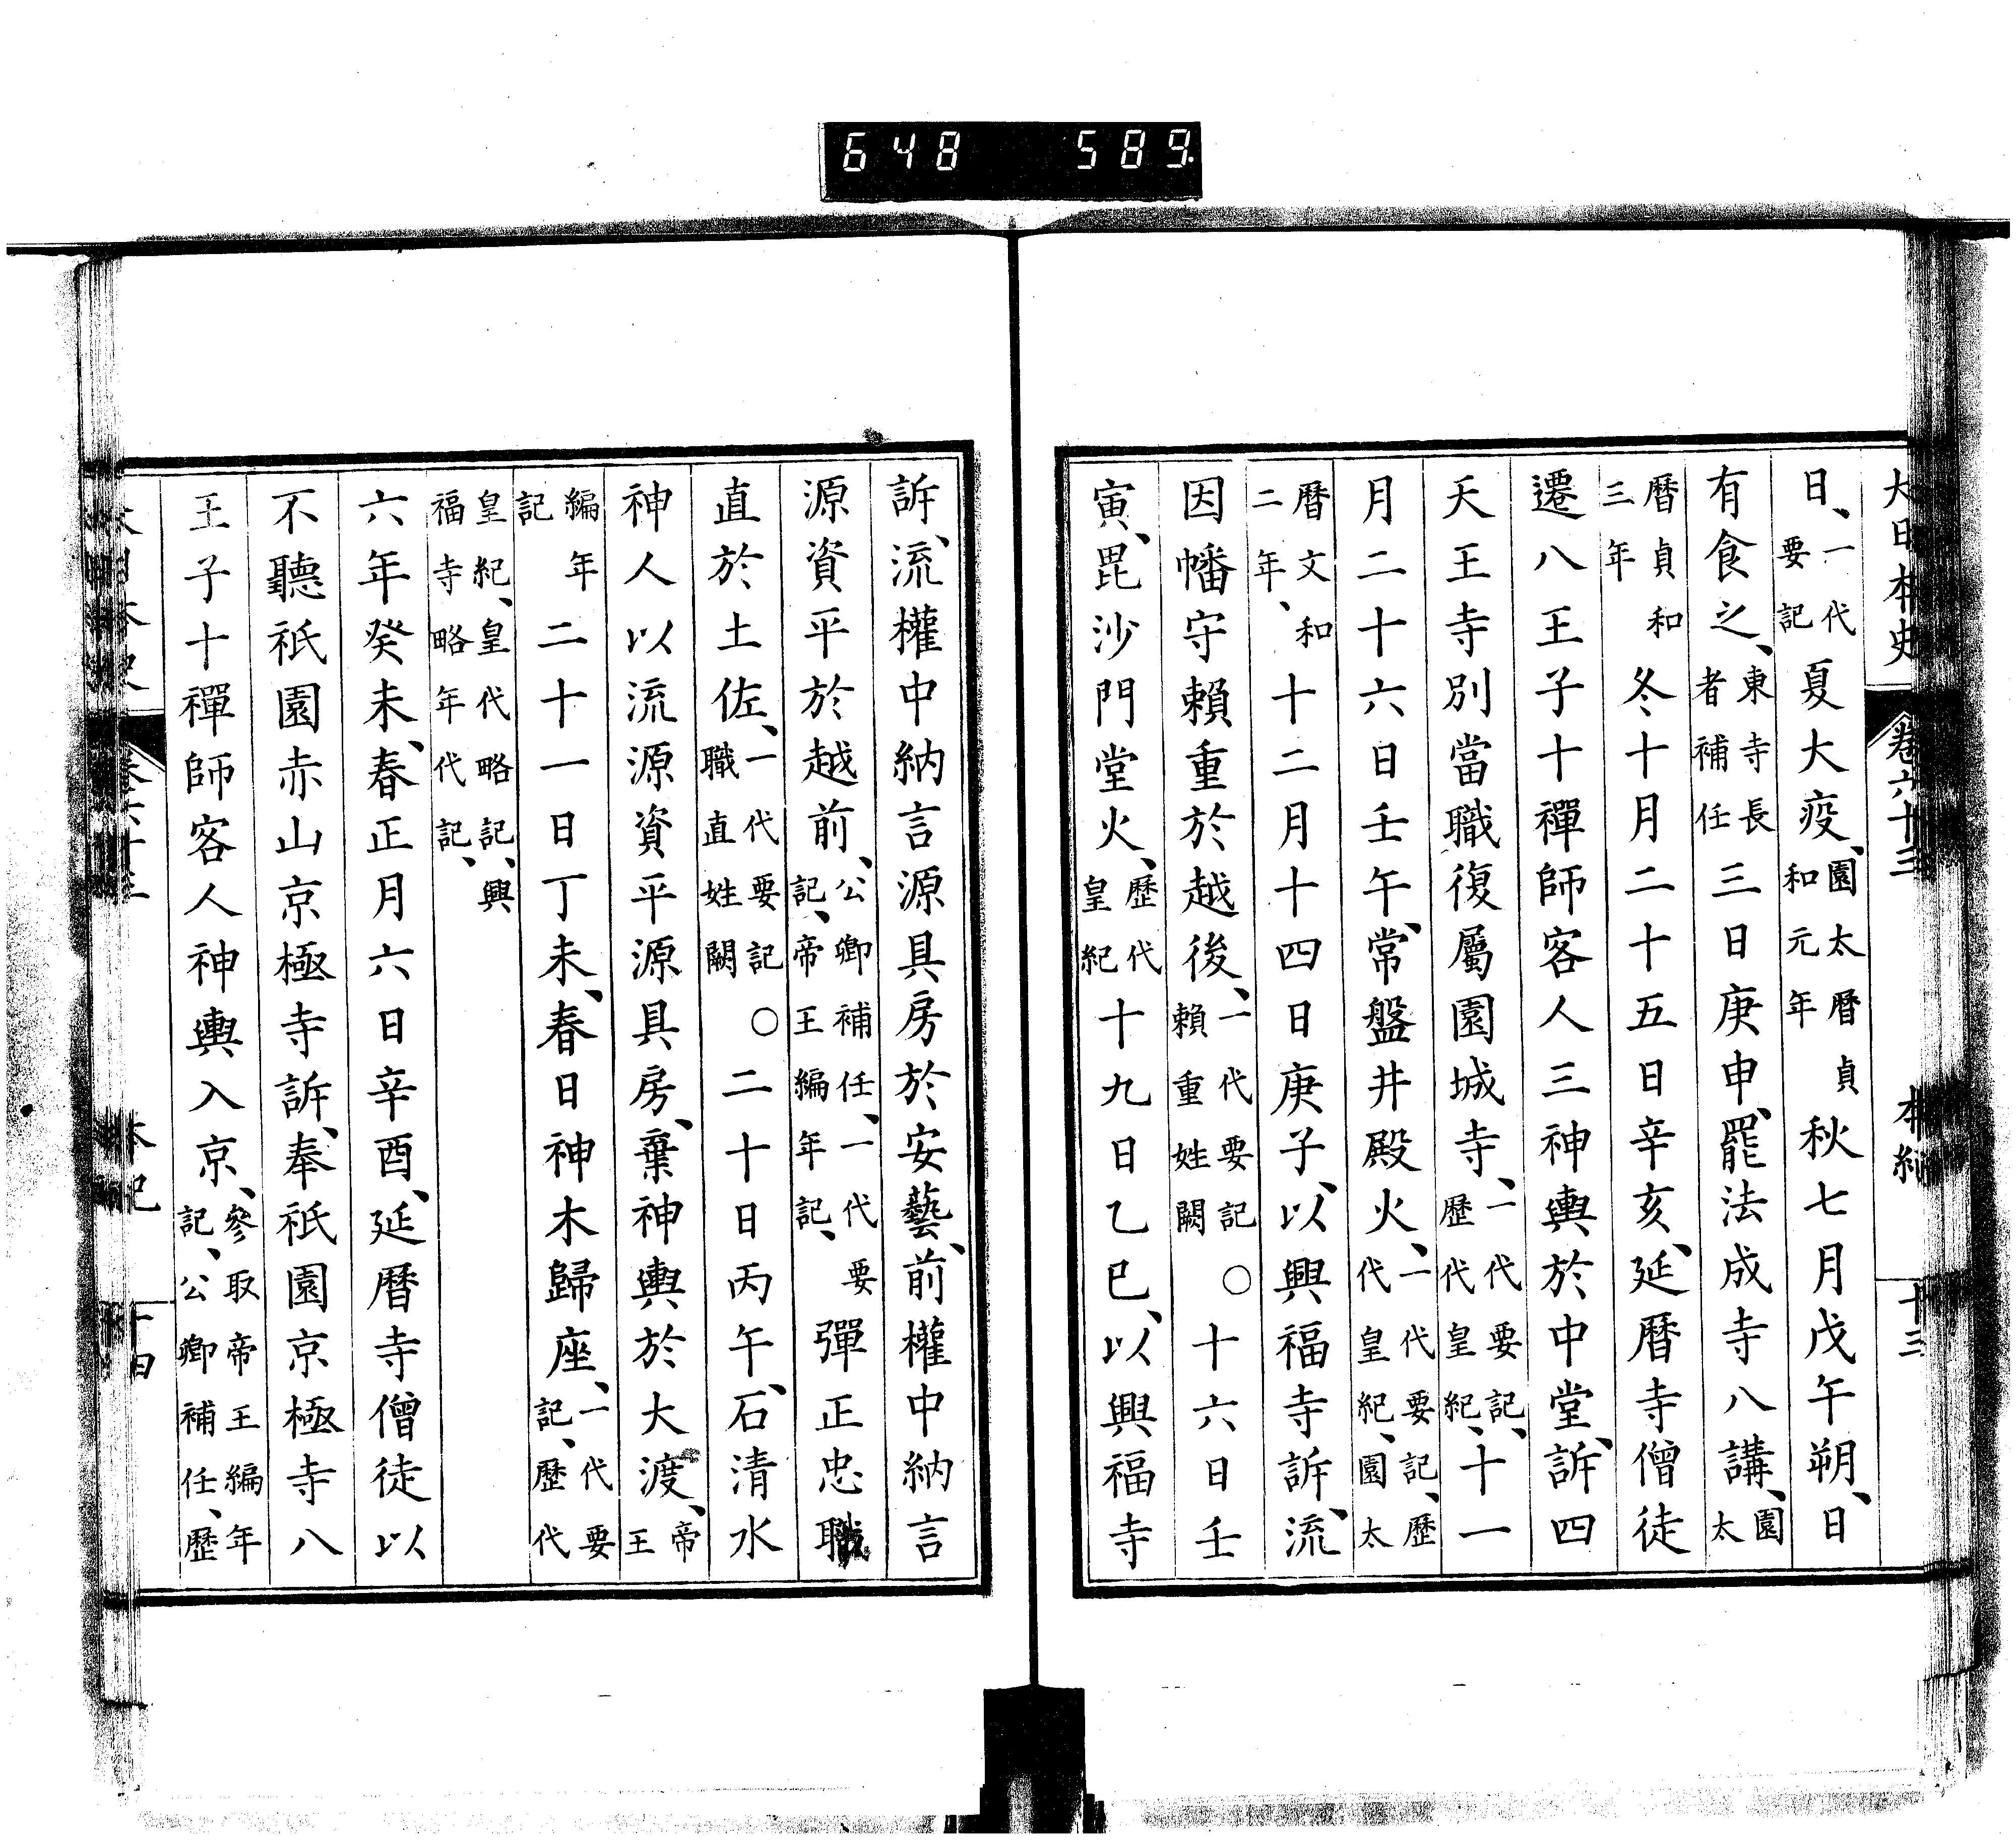 648 589.
大日本史 卷六十三 本紀 十三
日、一代要記夏大疫、園太曆貞和元年秋七月戊午朔、日
有食之、東寺長者補任三日庚申、罷法成寺八講、園太
曆貞和三年冬十月二十五日辛亥、延曆寺僧徒
遷八王子十禪師客人三神輿於中堂、訴四
天王寺別當職復屬園城寺、一代要記、歷代皇紀、十一
月二十六日壬午、常盤井殿火、一代要記、歷代皇紀、園太
曆文和二年、十二月十四日庚子、以興福寺訴、流
因幡守賴重於越後、一代要記賴重姓闕○十六日壬
寅、毘沙門堂火、歷代皇紀十九日乙巳、以興福寺
訴、流權中納言源具房於安藝、前權中納言
源資平於越前、公卿補任、一代要記、帝王編年記、彈正忠職
直於土佐、一代要記職直姓闕○二十日丙午、石清水
神人以流源資平源具房、棄神輿於大渡、帝王
編年記二十一日丁未、春日神木歸座、一代要記、歷代
皇紀、皇代略記、興福寺略年代記、
六年癸未、春正月六日辛酉、延曆寺僧徒以
不聽祇園赤山京極寺訴、奉祇園京極寺八
王子十禪師客人神輿入京、參取帝王編年記、公卿補任、歷
本紀 十四